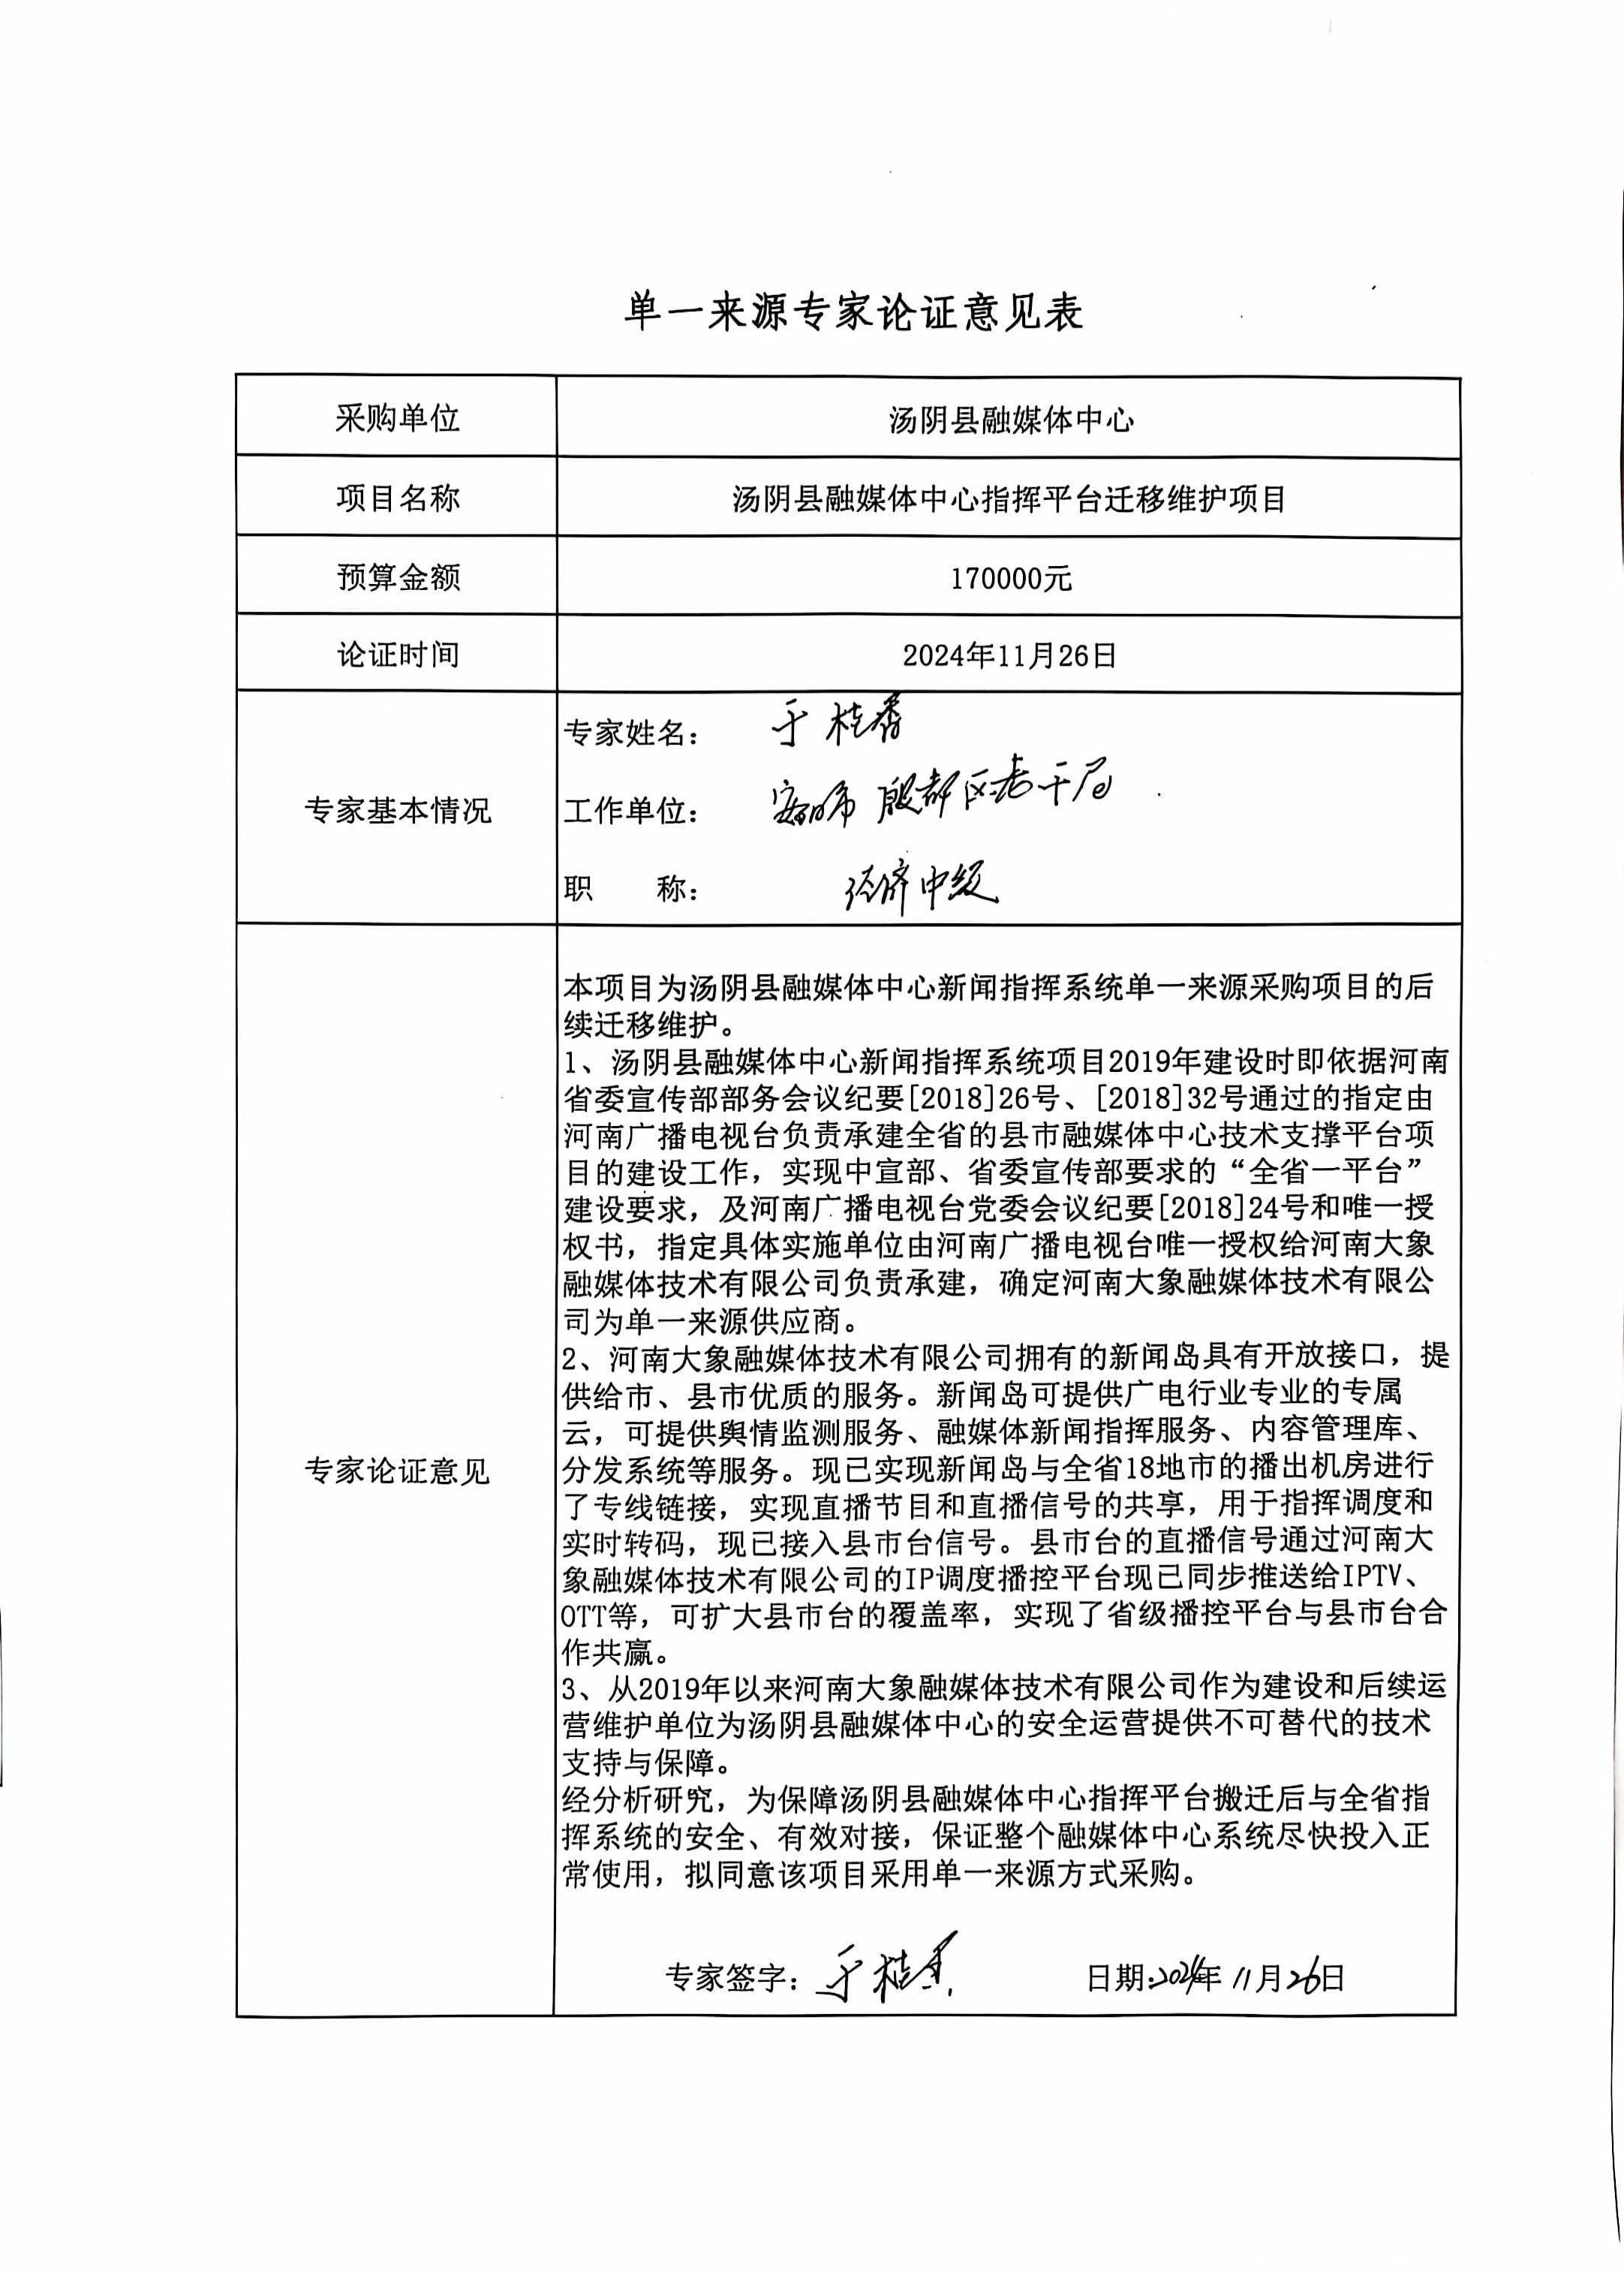 单一来源专家论证意见表
采购单位
汤阴县融媒体中心
项目名称
汤阴县融媒体中心指挥平台迁移维护项目
预算金额
170000元
论证时间
2024年11月26日
专家基本情况
专家姓名： 于桂香
工作单位： 安阳市殷都区老干局
职　　称： 经济中级
专家论证意见
本项目为汤阴县融媒体中心新闻指挥系统单一来源采购项目的后
续迁移维护。
1、汤阴县融媒体中心新闻指挥系统项目2019年建设时即依据河南
省委宣传部部务会议纪要[2018]26号、[2018]32号通过的指定由
河南广播电视台负责承建全省的县市融媒体中心技术支撑平台项
目的建设工作，实现中宣部、省委宣传部要求的“全省一平台”
建设要求，及河南广播电视台党委会议纪要[2018]24号和唯一授
权书，指定具体实施单位由河南广播电视台唯一授权给河南大象
融媒体技术有限公司负责承建，确定河南大象融媒体技术有限公
司为单一来源供应商。
2、河南大象融媒体技术有限公司拥有的新闻岛具有开放接口，提
供给市、县市优质的服务。新闻岛可提供广电行业专业的专属
云，可提供舆情监测服务、融媒体新闻指挥服务、内容管理库、
分发系统等服务。现已实现新闻岛与全省18地市的播出机房进行
了专线链接，实现直播节目和直播信号的共享，用于指挥调度和
实时转码，现已接入县市台信号。县市台的直播信号通过河南大
象融媒体技术有限公司的IP调度播控平台现已同步推送给IPTV、
OTT等，可扩大县市台的覆盖率，实现了省级播控平台与县市台合
作共赢。
3、从2019年以来河南大象融媒体技术有限公司作为建设和后续运
营维护单位为汤阴县融媒体中心的安全运营提供不可替代的技术
支持与保障。
经分析研究，为保障汤阴县融媒体中心指挥平台搬迁后与全省指
挥系统的安全、有效对接，保证整个融媒体中心系统尽快投入正
常使用，拟同意该项目采用单一来源方式采购。
专家签字：于桂香 日期:2024年11月26日